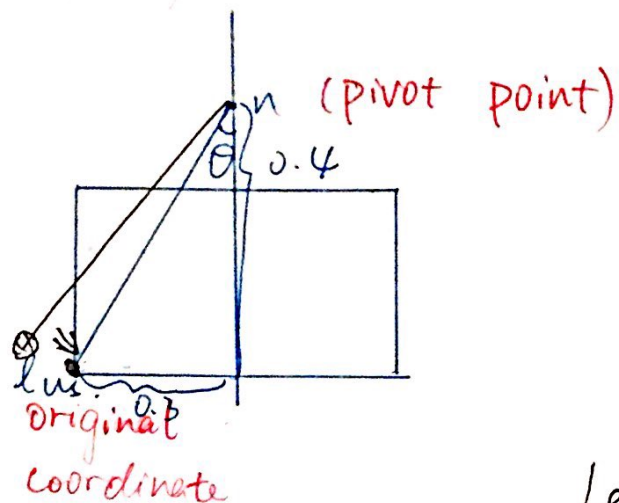 n (pivot point)
θ 0.4
0.3
original
coordinate